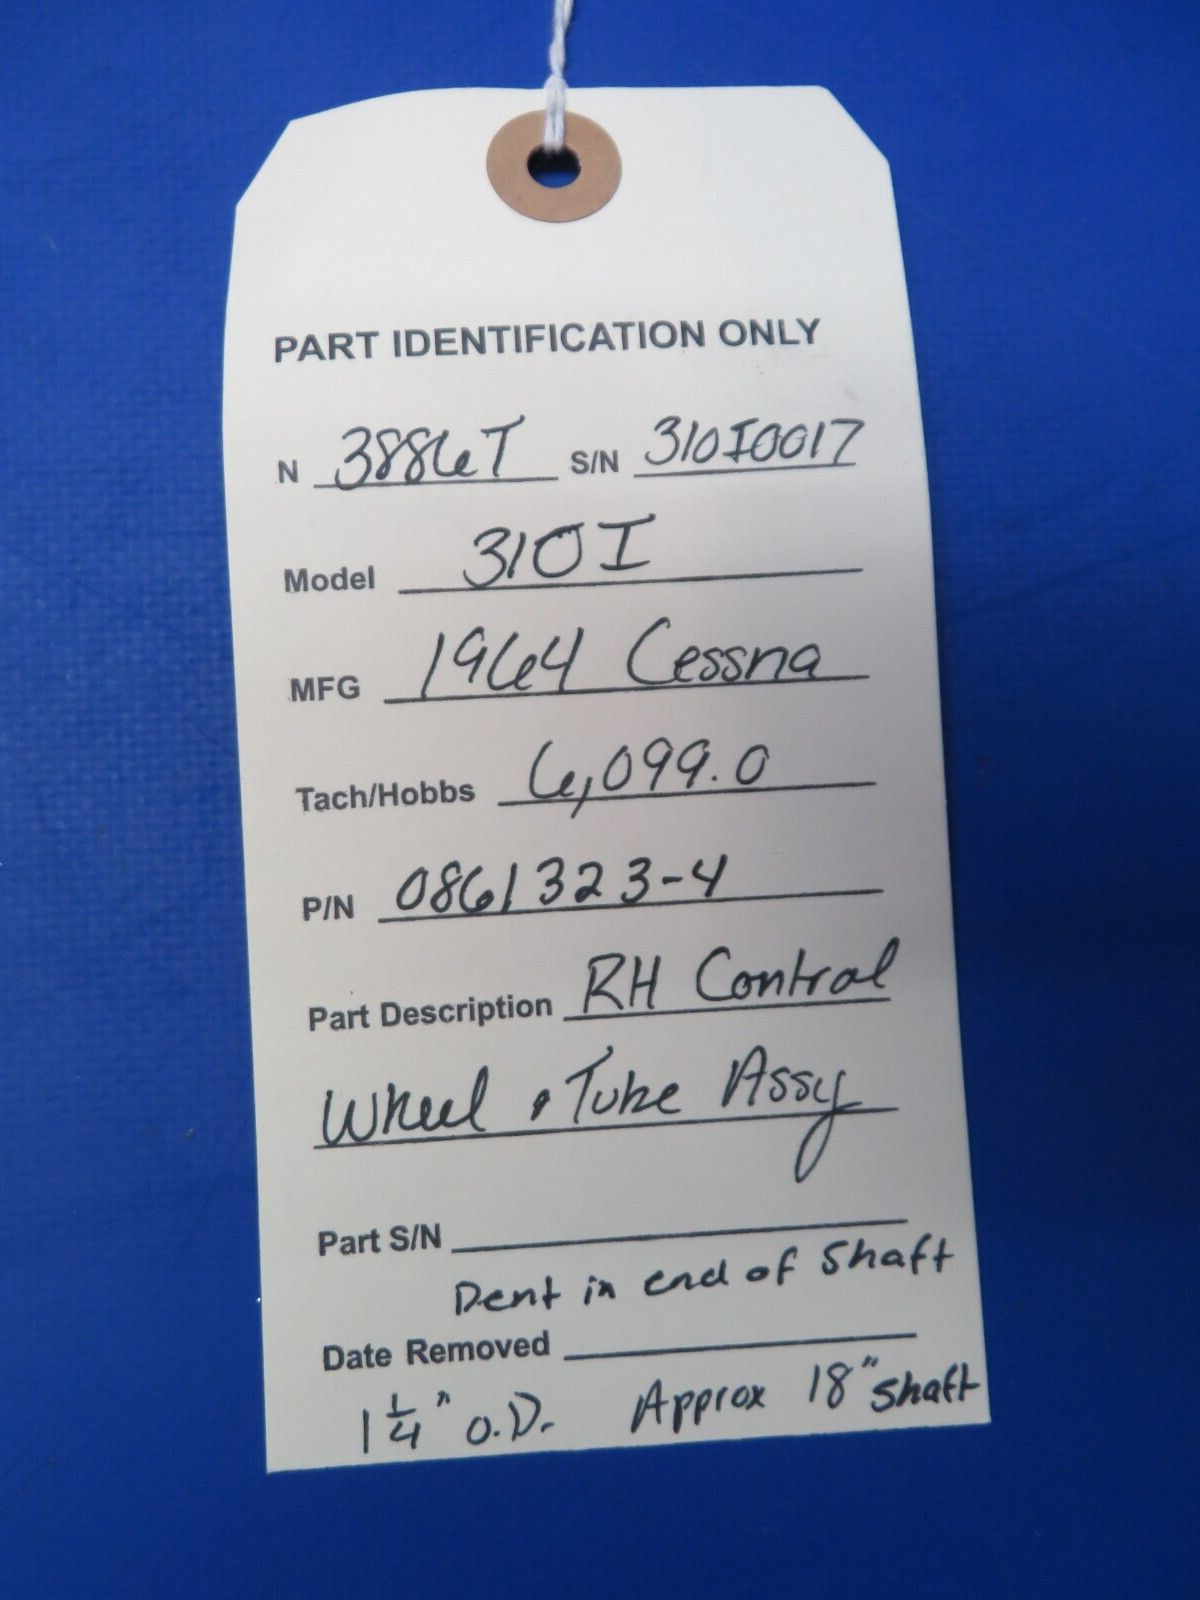 PART IDENTIFICATION ONLY
N 3886T S/N 310I0017
Model 310I
MFG 1964 Cessna
Tach/Hobbs 6,099.0
P/N 0861323-4
Part Description RH Control
Wheel & Tube Assy
Part S/N
Dent in end of shaft
Date Removed
1 1/4" O.D. Approx 18" shaft